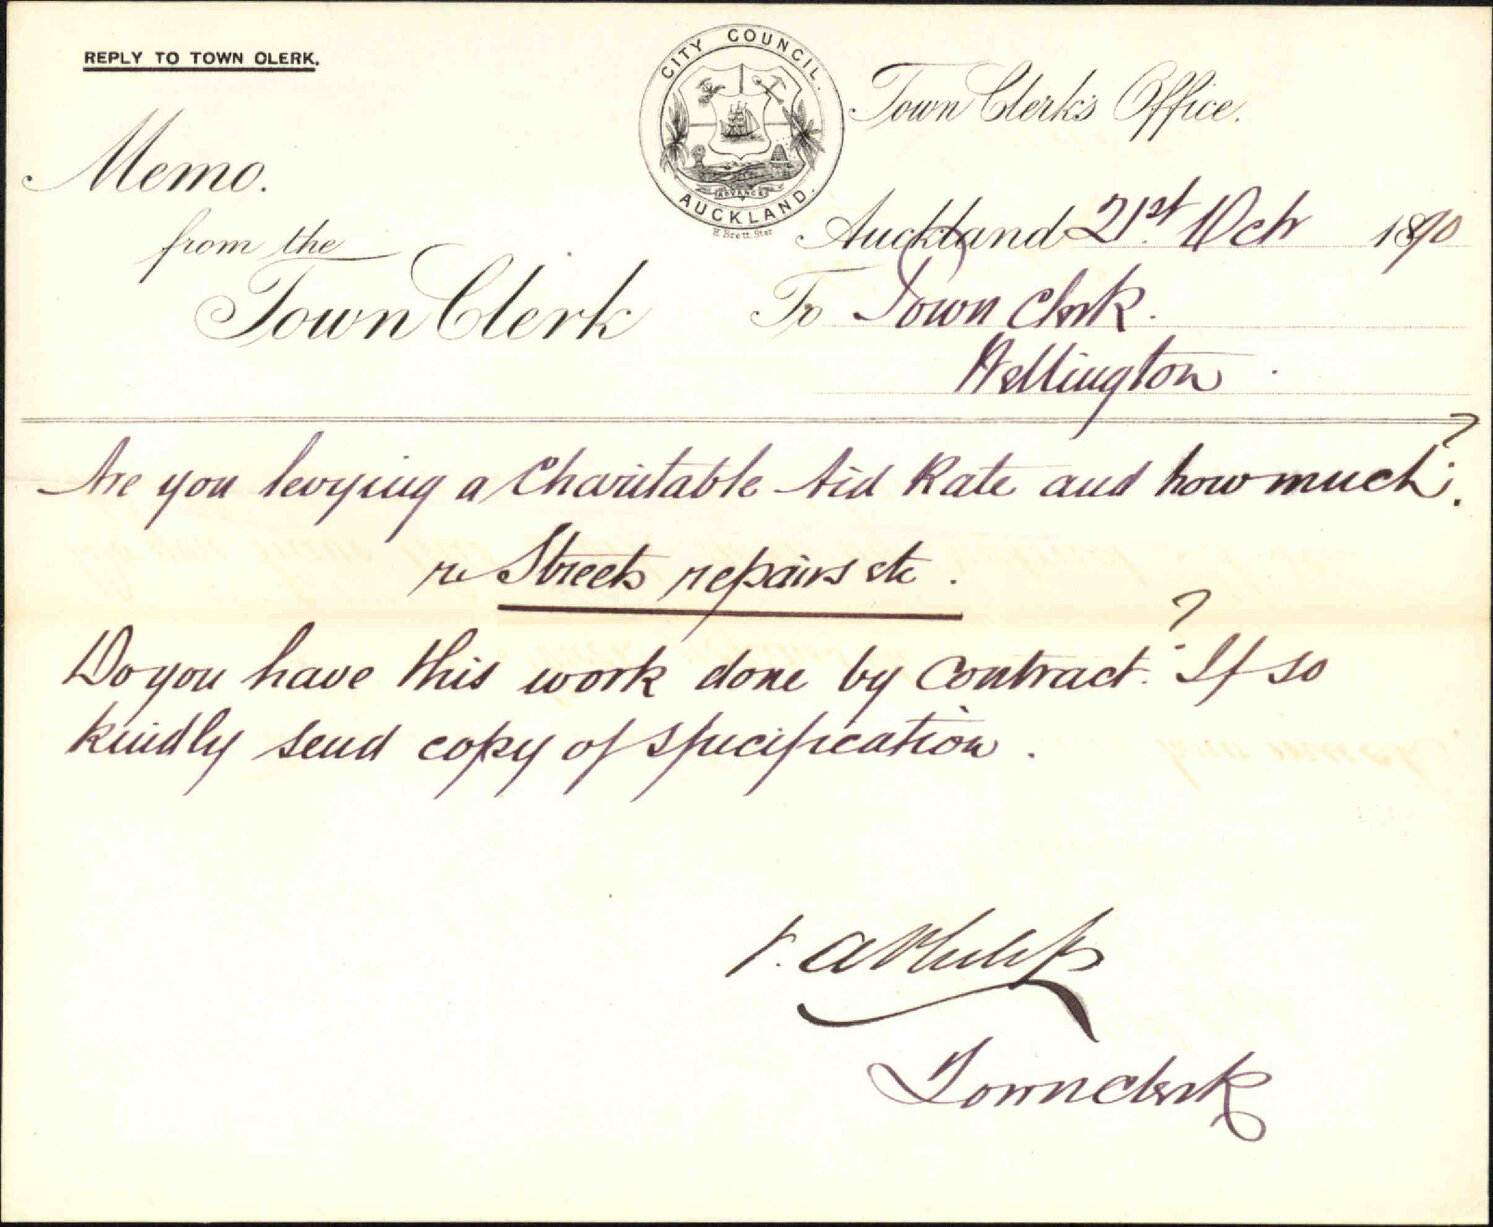 REPLY TO TOWN CLERK.
CITY COUNCIL.
ADVANCE
AUCKLAND.
H. Brett. Star
Town Clerk's Office.
Memo.
from the
Town Clerk
Auckland 21st Octr 1890
To Town Clerk.
Wellington
Are you levying a Charitable Aid Rate and how much?
re Streets repairs etc.
Do you have this work done by contract? If so
kindly send copy of specification.
Philips
Town clerk